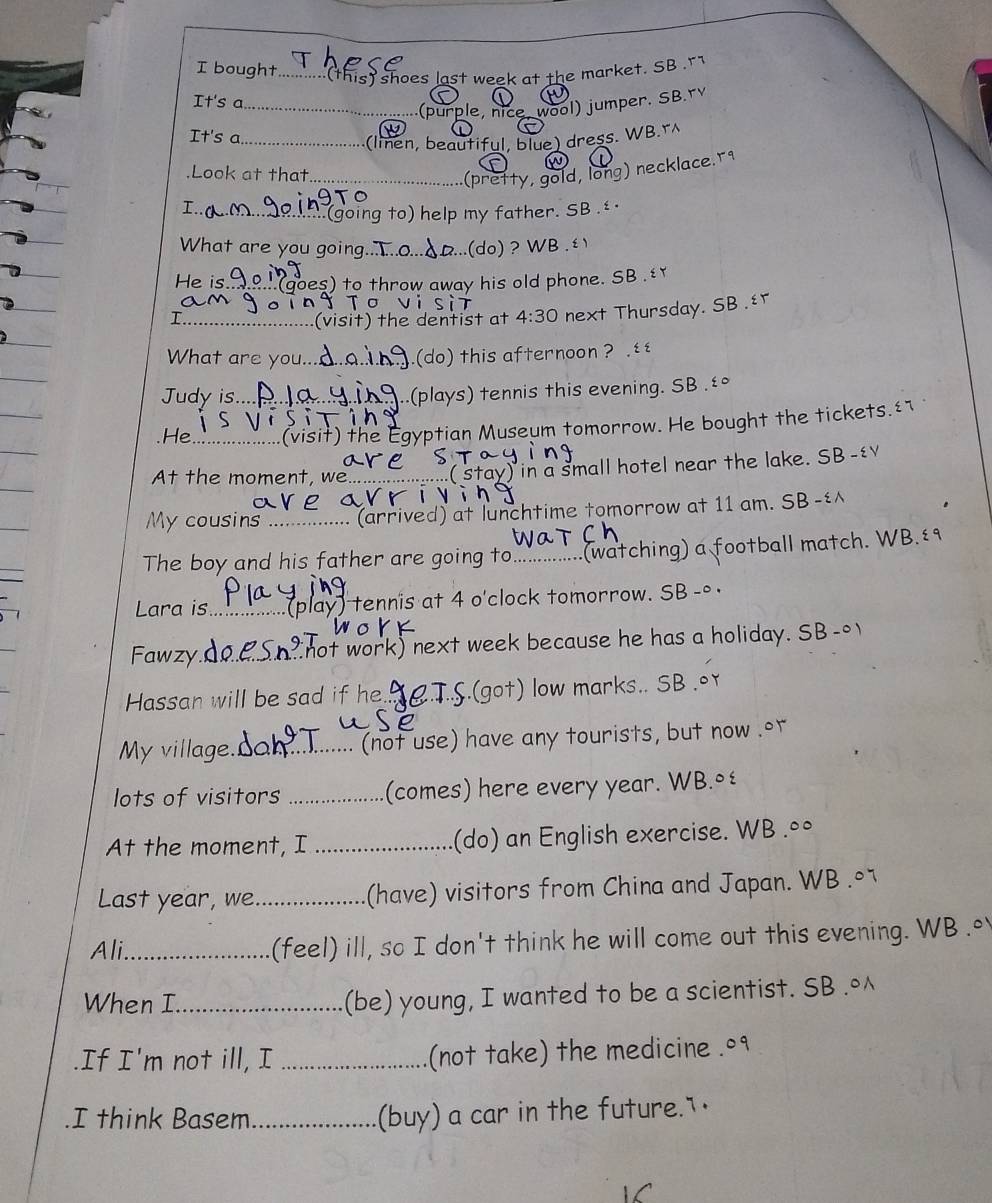 I bought.......These...(this) shoes last week at the market. SB .٣٦
C ① W
It's a.................................(purple, nice, wool) jumper. SB.٣٧
W ① C
It's a.........................(linen, beautiful, blue) dress. WB.٣٨
W
.Look at that..................................(pretty, gold, long) necklace.٣٩
I..am going To...(going to) help my father. SB .٤٠
What are you going...To do...(do) ? WB .٤١
He is..going...(goes) to throw away his old phone. SB .٤٢
am going To visiT
I..........................(visit) the dentist at 4:30 next Thursday. SB .٤٣
What are you...doing.(do) this afternoon ? .٤٤
Judy is....playing..(plays) tennis this evening. SB .٤٥
is visiTing
.He..................(visit) the Egyptian Museum tomorrow. He bought the tickets.٤٦
are sTaying
At the moment, we....................( stay) in a small hotel near the lake. SB -٤٧
are arriving
My cousins ................ (arrived) at lunchtime tomorrow at 11 am. SB -٤٨
waTch
The boy and his father are going to..............(watching) a football match. WB.٤٩
Playing
Lara is................(play) tennis at 4 o'clock tomorrow. SB -٥٠
work
Fawzy.doesn'T.not work) next week because he has a holiday. SB -٥١
Hassan will be sad if he.geTs.(got) low marks.. SB .٥٢
use
My village.don'T....... (not use) have any tourists, but now .٥٣
lots of visitors ..................(comes) here every year. WB.٥٤
At the moment, I ..........................(do) an English exercise. WB .٥٥
Last year, we.....................(have) visitors from China and Japan. WB .٥٦
Ali..........................(feel) ill, so I don't think he will come out this evening. WB .٥٧
When I..............................(be) young, I wanted to be a scientist. SB .٥٨
.If I'm not ill, I ..........................(not take) the medicine .٥٩
.I think Basem.....................(buy) a car in the future.٦٠